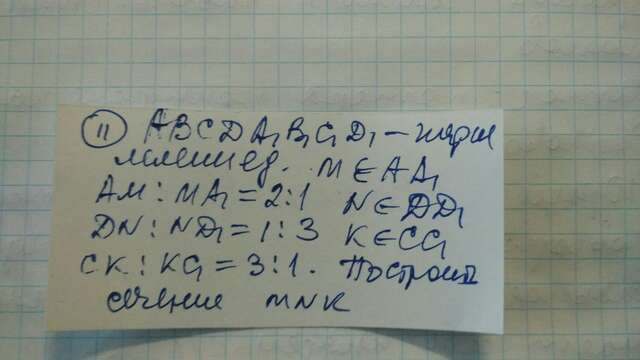 11 ABCDA₁B₁C₁D₁ – паралл
лепипед. M∈AA₁
AM : MA₁ = 2:1 N∈DD₁
DN : ND₁ = 1:3 K∈CC₁
CK : KC₁ = 3:1. Построить
сечение MNK